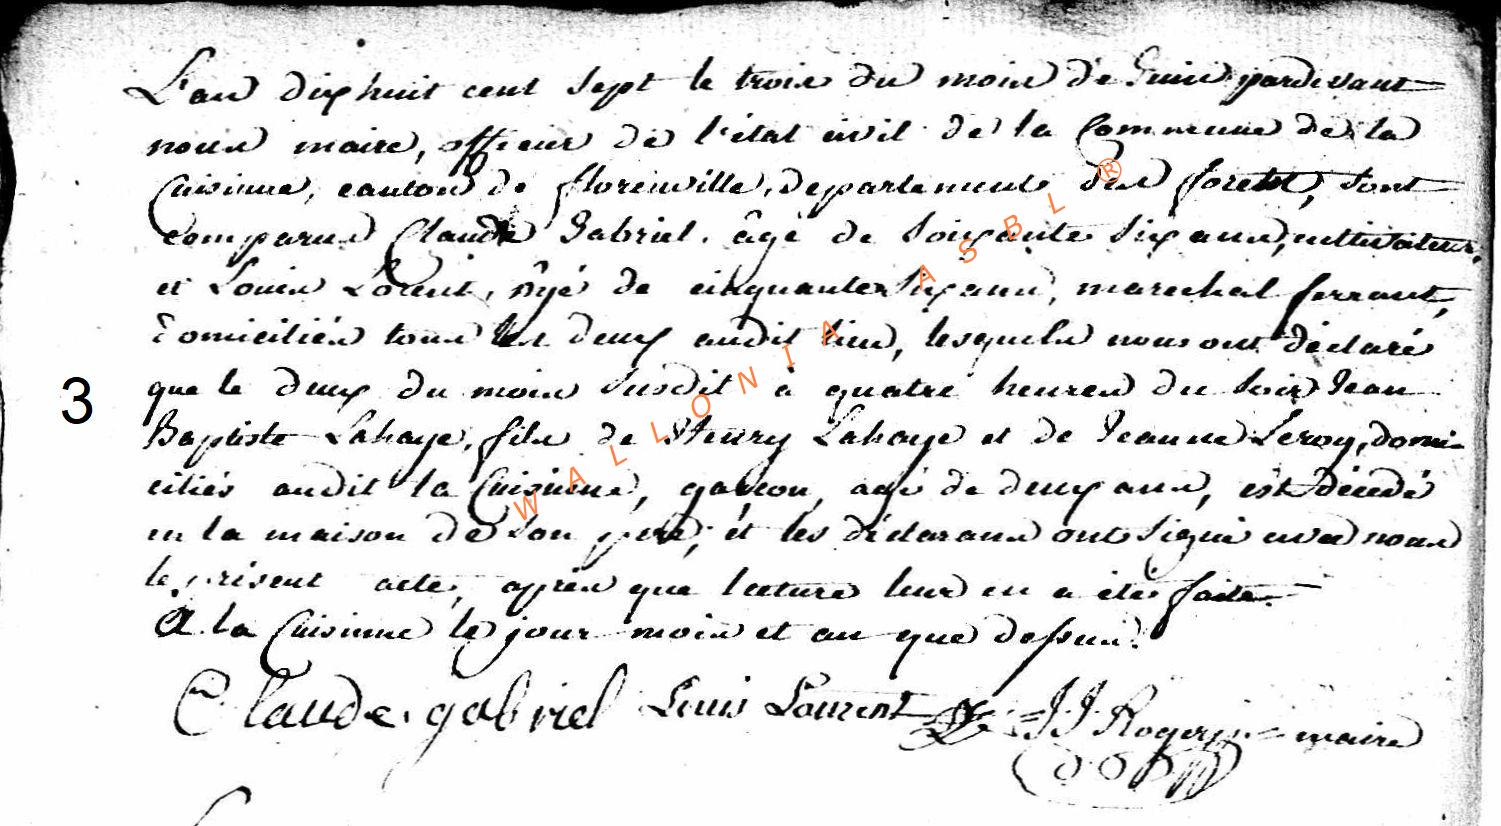 L'an dixhuit cent sept le trois du mois de Juin pardevant
nous maire, officier de l'état civil de la Commune de la
Cuisinne, canton de florenville, departement des forets, sont
comparus Claude Gabriel, âgé de soixante six ans, cultivateur,
et Louis Lorent, âgé de cinquante six ans, marechal ferrant,
domiciliés tous les deux audit lieu, lesquels nous ont déclaré
que le deux du mois susdit à quatre heures du soir Jean
3
Baptiste Lahaye, fils de Henry Lahaye et de Jeanne Leroy, domi-
ciliés audit la Cuisinne, garcon, agé de deux ans, est décédé
en la maison de son pere, et les déclarans ont signé avec nous
le présent acte, après que lecture leur en a été faite.
A la Cuisinne le jour mois et an que dessus.
Claude gabriel Louis Lourent J J Roger maire
WALLONIA ASBL ®